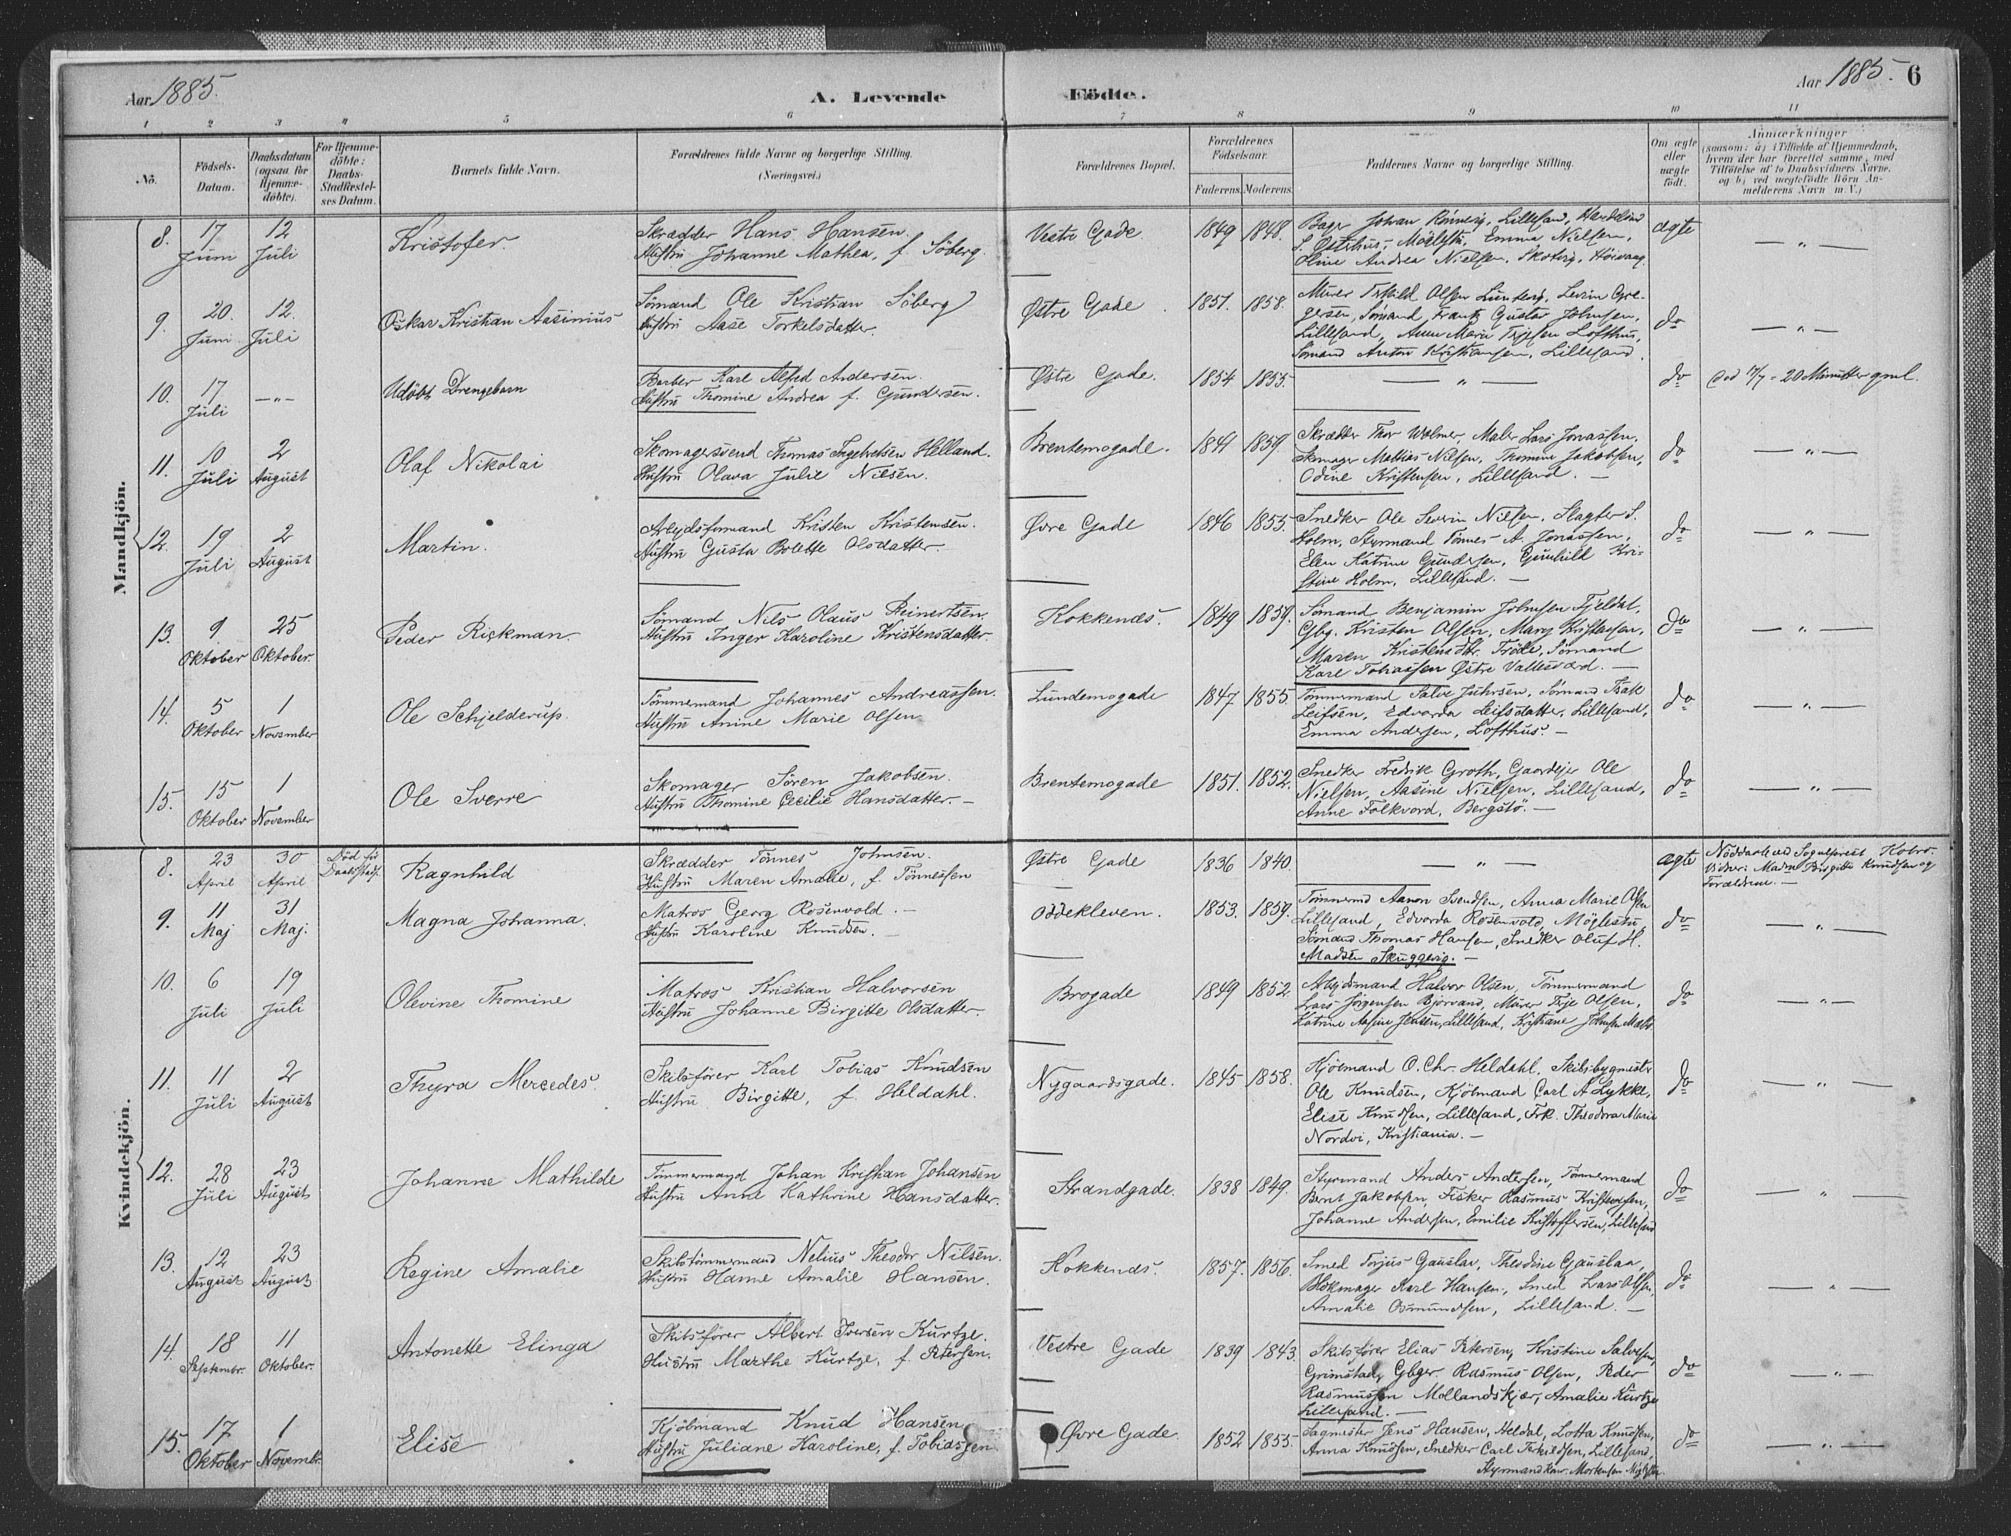 Aar 1885.
A. Levende Födte.
Aar 1885. 6
1 2 3 4 5 6 7 8 9 10 11
No.
Födsels-Datum.
Daabsdatum (ogsaa for Hjemmedöbte).
For Hjemmedöbte: Daabs-Stadfæstelses Datum.
Barnets fulde Navn.
Forældrenes fulde Navne og borgerlige Stilling. (Næringsvei.)
Forældrenes Bopæl.
Forældrenes Födselsaar.
Faderens. Moderens.
Faddernes Navne og borgerlige Stilling.
Om ægte eller uægte födt.
Anmærkninger
(saasom: a) i Tilfælde af Hjemmedaab, hvem der har forrettet samme, med Tilföielse af to Daabsvidners Navne, og b) ved uægtefödte Börn Anmelderens Navn m. V.)
Mandkjön.
8. 17 Juni 12 Juli Kristofer
Skrædder Hans Hansen.
Hustru Johanne Mathea, f. Söberg.
Vestre Gade 1849 1848.
Bager Johan Rönnevig, Lillesand,
S. Østrhus, Möglestu, Emma Nielsen,
Oline Andrea Nielsen, Skotvig, Höivaag.
ægte — " —
9. 20 Juni 12. Juli Oskar Kristian Aasinius
Sömand Ole Kristian Söberg
Hustru Aase Torkelsdatter.
Østre Gade. 1851. 1858.
Murer Olsen Lunden, Levin Gre-
gersen, Sömand Frantz Gustav Johnsen,
Lillesand, Anne Marie Terjesen Lofthus,
Sömand Anton Kristiansen, Lillesand.
do — " —
10. 17 Juli — " — Udöbt Drengebarn
Barber Karl Alfred Andersen.
Hustru Thomine Andrea f. Gundersen.
Østre Gade. 1854 1855.
— " —
do Död 17/7 - 20 Minutter gml.
11. 10 Juli 2 August Olaf Nikolai
Skomagersvend Thomas Ingebretsen Helland.
Hustru Olava Julie Nilsen.
Brentemogade. 1841 1859.
Skrædder Thor Wolmer, Maler Lars Jonassen,
Skomager Mathias Nilsen, Thomine Jakobsen,
Odine Kristensen, Lillesand. —
do — " —
12. 19 Juli 2 August Martin.
Arbeidsformand Kristen Kristensen.
Hustru Gusta Bolette Olsdatter.
Øvre Gade 1846 1855.
Snedker Ole Severin Nielsen, Slagter S.
Holm, Styrmand Tönnes A. Jonassen,
Elen Katrine Gundersen, Gunhild Kri-
stine Holm, Lillesand. —
do — " —
13. 9 Oktober 25 Oktober. Peder Rickman.
Sömand Nils Olaus Reinertsen.
Hustru Inger Karoline Kristensdatter.
Kokkenæs. 1849 1859.
Sömand Benjamin Johnsen Fjeldal,
Gbg. Kristen Olsen, Mary Kristensen,
Maren Kristensdtr. Tröde, Sömand
Karl Tobiassen Østre Vallesværd. —
do — " —
14. 5 Oktober 1 November Ole Schjelderup.
Tömmermand Johannes Andreassen.
Hustru Anine Marie Olsen
Lundemogade 1847 1855.
Tömmermand Salve Juhrsen, Sömand Isak
Leifsen, Edvarda Leifsdatter, Lillesand,
Emma Andersen, Lofthus. —
do — " —
15. 15 Oktober 1 November Ole Sverre
Skomager Sören Jakobsen.
Hustru Thomine Cecilie Hansdatter. —
Brentemogade 1851. 1852.
Snedker Fredrik Groth, Gaardejer Ole
Nielsen, Aasine Nielsen, Lillesand,
Anne Folkvord, Bergstö. —
do — " —
Kvindekjön.
8. 23 April 30 April Död før Daabsstadf. Ragnhild
Skrædder Tönnes Johnsen.
Hustru Maren Amalie, f. Tönnessen
Østre Gade 1836 1840.
— " —
ægte Nöddaab ved Sognepræst
Vidner: Madm. Birgitte Knudsen og
Forældrene. —
9. 11 Maj 31 Maj. Magna Johanna.
Matros Georg Rosenvold. —
Hustru Karoline Knudsen.
Oddekleven. 1853. 1859.
Tömmermd Aanon Svendsen, Anna Marie Olsen
Lillesand, Edvarda Rosenvold, Möglestu,
Sömand Thomas Hansen, Snedker Oluf H.
Madsen Skuggevig. —
do — " —
10. 6 Juli 19 Juli Olevine Thomine
Matros Kristian Halvorsen
Hustru Johanne Birgitte Olsdatter.
Brogade 1849 1852.
Arbejdsmand Halvor Olsen, Tömmermand
Lars Jörgensen Björvand, Murer Terje Olsen,
Katrine Aasine Jensen, Lillesand, Kristiane Johnsen
do — " —
11. 11 Juli 2 August Thyra Mercedes.
Skibsförer Karl Tobias Knudsen
Hustru Birgitte, f. Heldahl.
Nygaardsgade. 1845 1858.
Kjöbmand O. Chr. Heldahl, Skibsbygmester
Ole Knudsen, Kjöbmand Carl A. Lykke,
Elise Knudsen, Lillesand, Frk. Theodora Marie
Nordvi, Kristiania. —
do — " —
12. 28 Juli 23 August Johanne Mathilde
Tömmermand Johan Kristian Johansen
Hustru Anne Kathrine Hansdatter.
Strandgade. 1838 1849.
Styrmand Anders Andersen, Tömmermand
Bernt Jakobsen, Fisker Rasmus Kristensen,
Johanne Andersen, Emilie Kristoffersen, Lillesand
do — " —
13. 12 August 23 August Regine Amalie
Skibstömmermand Nelius Theodor Nilsen.
Hustru Hanne Amalie Hansen.
Kokkenæs. 1857. 1856.
Smed Torjus Gauslaa, Theodine Gauslaa,
Blokmager Karl Hansen, Smed Lars Olsen,
Amalie Osmundsen, Lillesand. —
do — " —
14. 18 Septembr. 11 Oktober. Antonette Elinga
Skibsförer Albert Iversen Kurtze.
Hustru Marthe Kurtze, f. Petersen.
Vestre Gade 1839 1843.
Skibsförer Elias Petersen, Kristine Salvesen,
Grimstad, Gbger. Rasmus Olsen, Peder
Rasmussen Mollandskjær, Amalie Kurtze
Lillesand. —
do — " —
15. 17 Oktober 1 Novembr. Elise
Kjöbmand Knud Hansen
Hustru Juliane Karoline, f. Tobiassen
Øvre Gade. 1852 1855.
Sagmester Jens Hansen, Heldal, Lotta Knudsen,
Anna Knudsen, Snedker Carl Terkildsen, Lillesand,
Styrmand Mortensen
do — " —